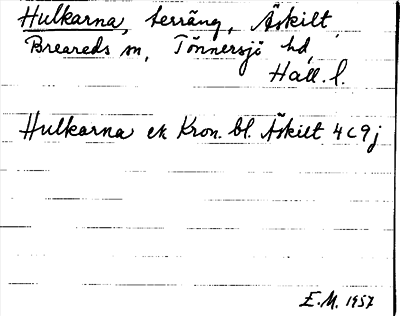 Hulkarna, terräng, Äskilt,
Breareds sn, Tönnersjö hd,
Hall. l.
Hulkarna ek Kron. bl. Äskilt 4c9j
E.M. 1957